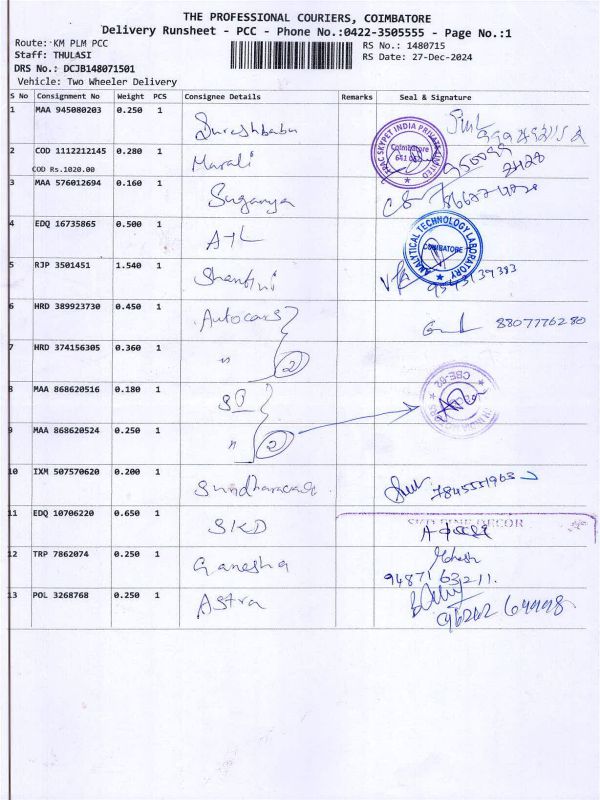 THE PROFESSIONAL COURIERS, COIMBATORE
Delivery Runsheet - PCC - Phone No.:0422-3505555 - Page No.:1
Route: KM PLM PCC
RS No.: 1480715
Staff: THULASI
RS Date: 27-Dec-2024
DRS No.: DCJB148071501
Vehicle: Two Wheeler Delivery
S No Consignment No Weight PCS Consignee Details Remarks Seal & Signature
1 MAA 945080203 0.250 1 Sureshbabu
2 COD 1112212145 0.280 1 Murali
COD Rs.1020.00
Coimbatore
3 MAA 576012694 0.160 1 Suganya
4 EDQ 16735865 0.500 1 ATL
ANALYTICAL TECHNOLOGY LABORATORY
COIMBATORE
5 RJP 3501451 1.540 1 Shanthi
6 HRD 389923730 0.450 1 Autocars 8807776280
7 HRD 374156305 0.360 1 " 2
8 MAA 868620516 0.180 1
CBE-02
9 MAA 868620524 0.250 1 " 2
10 IXM 507570620 0.200 1
11 EDQ 10706220 0.650 1 SKD
12 TRP 7862074 0.250 1 Ganesha Mahesh
94871 63211.
13 POL 3268768 0.250 1 Astra